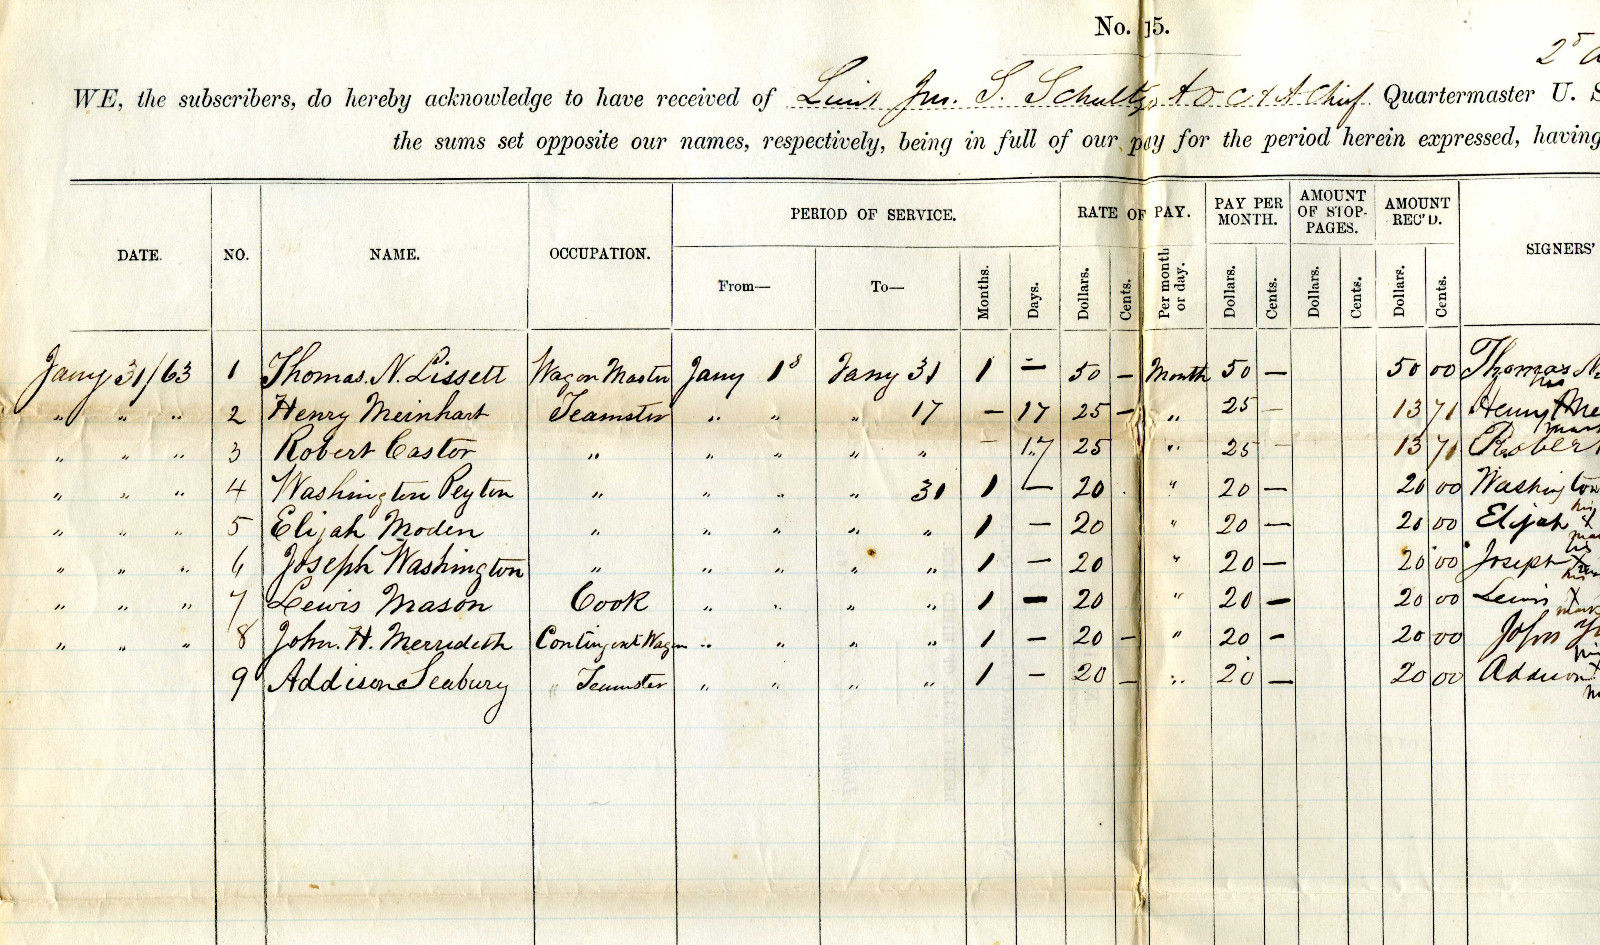 No. 15.
2d
WE, the subscribers, do hereby acknowledge to have received of Lieut Jno. S. Schultze A D C & A Chief Quartermaster U. S
the sums set opposite our names, respectively, being in full of our pay for the period herein expressed, having
DATE. NO. NAME. OCCUPATION. PERIOD OF SERVICE. RATE OF PAY. PAY PER MONTH. AMOUNT OF STOP-PAGES. AMOUNT REC'D. SIGNERS'
From— To— Months. Days. Dollars. Cents. Per month or day. Dollars. Cents. Dollars. Cents. Dollars. Cents.
Jany 31/63 1 Thomas. N. Lissett Wagon Master Jany 1s Jany 31 1 — 50 — Month 50 — 50 00 Thomas N.
" " " 2 Henry Meinhart Teamster " " " 17 — 17 25 — " 25 — 13 71 Henry his x mark Me
" " " 3 Robert Castor " " " " " — 17 25 " 25 — 13 71 Robert
" " " 4 Washington Peyton " " " " 31 1 — 20 " 20 — 20 00 Washington
" " " 5 Elijah Moden " " " " " 1 — 20 " 20 — 20 00 Elijah his x mar
" " " 6 Joseph Washington " " " " " 1 — 20 " 20 — 20 00 Joseph his x
" " " 7 Lewis Mason Cook " " " " 1 — 20 " 20 — 20 00 Lewis his x mark
" " " 8 John. H. Merredeth Contingent Wagon " " " " 1 — 20 — " 20 — 20 00 John
9 Addison Seabury " Teamster " " " " 1 — 20 — " 20 — 20 00 Addison hi x m